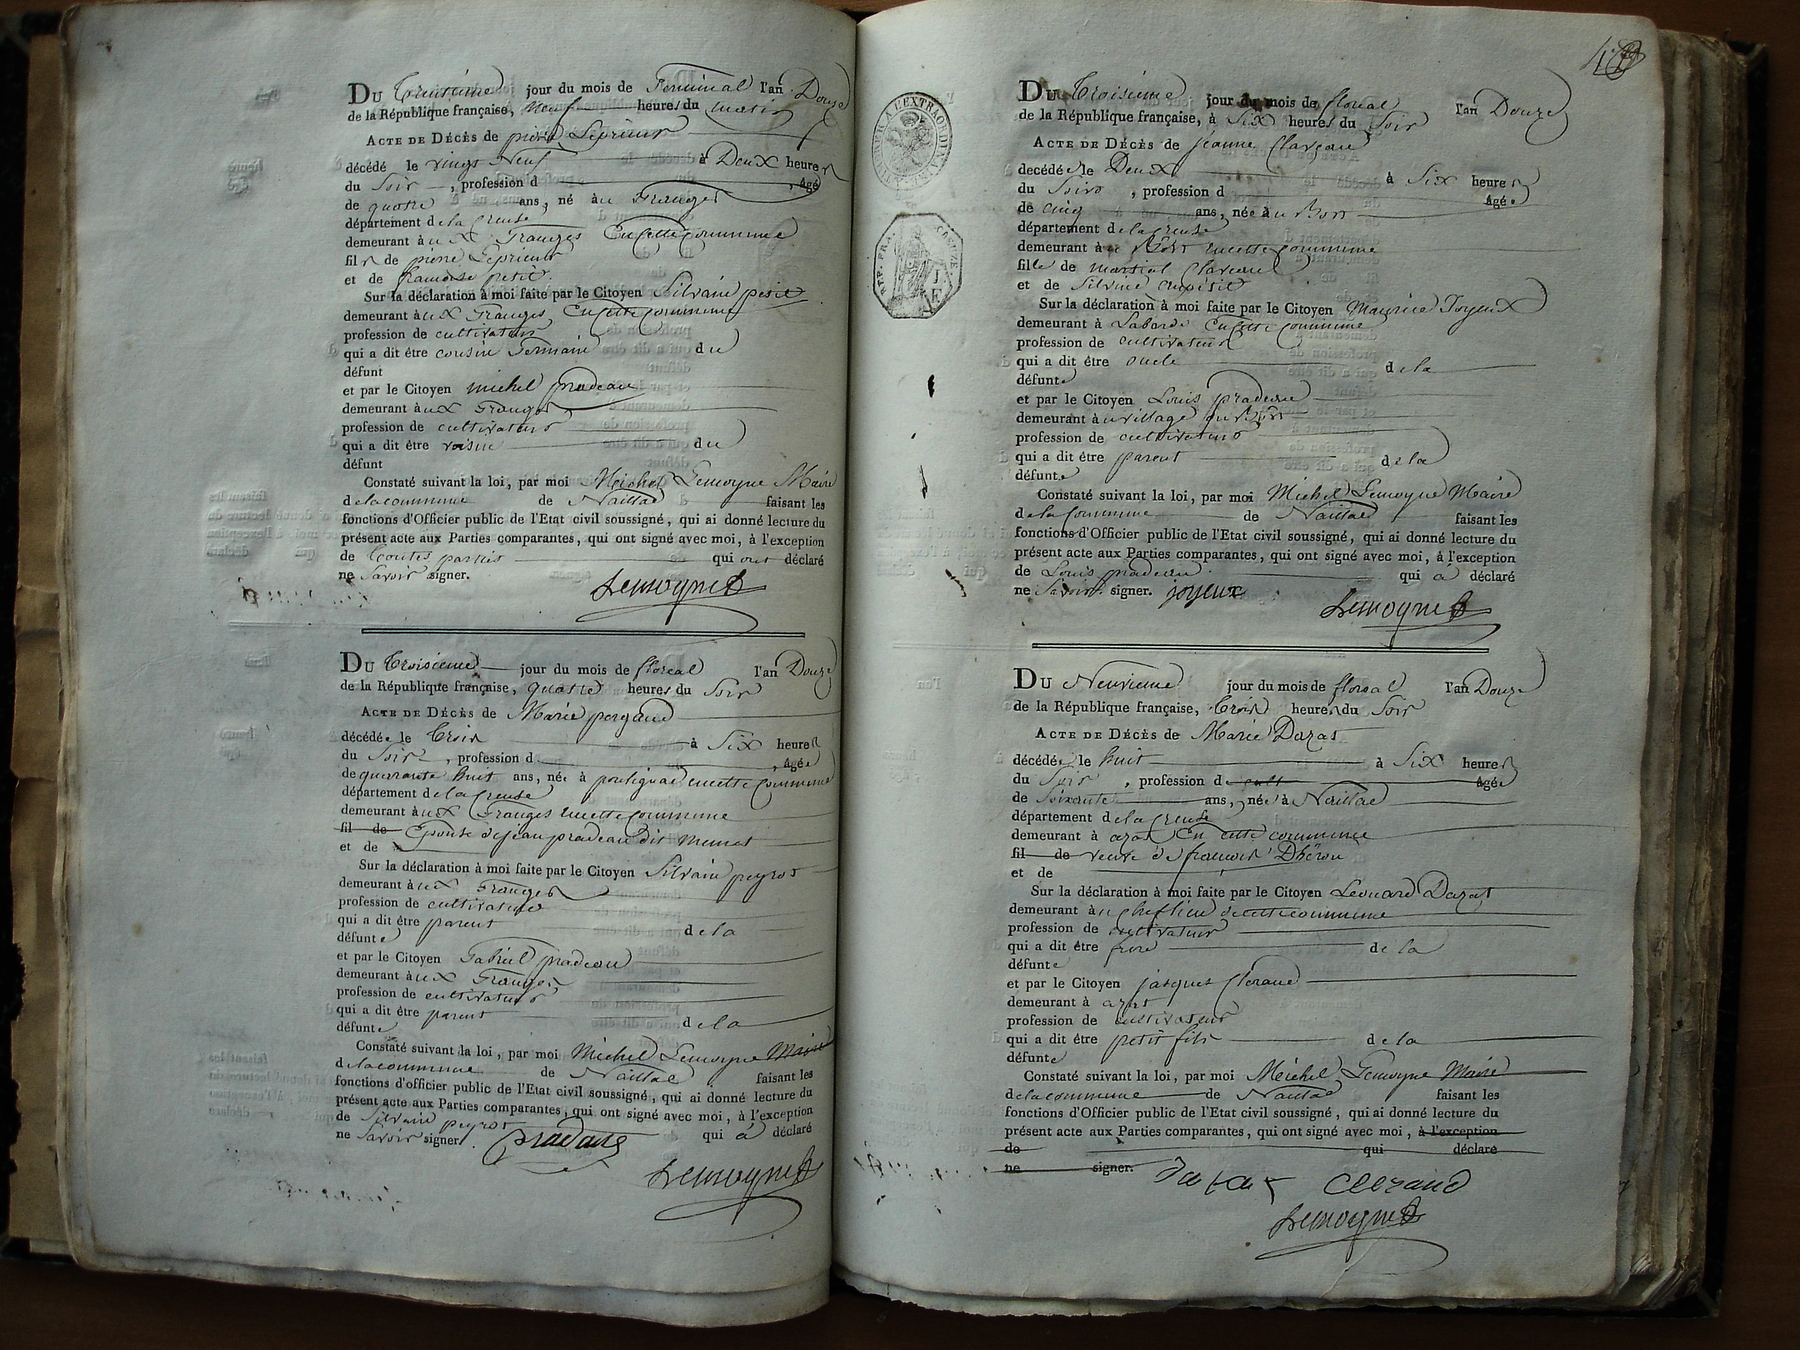 Du trentieme jour du mois de Germinal l'an Douze
de la République française, neuf heures du matin
Acte de Décès de pierre Leprieur
décédé le vingt Neuf à Deux heures
du Soir, profession d , Agé
de quatre ans, né aux Granges
département de la Creuse
demeurant aux Granges En cette commune
fils de pierre Leprieur
et de francoise petit
Sur la déclaration à moi faite par le Citoyen Silvain petit
demeurant aux Granges En cette commune
profession de cultivateur
qui a dit être cousin Germain du
défunt
et par le Citoyen michel pradeau
demeurant aux Granges
profession de cultivateur
qui a dit être voisin du
défunt
Constaté suivant la loi, par moi Michel Lemoyne Maire
de la commune de Naillad faisant les
fonctions d'Officier public de l'Etat civil soussigné, qui ai donné lecture du
présent acte aux Parties comparantes, qui ont signé avec moi, à l'exception
de toutes parties qui ont déclaré
ne Savoir signer. Lemoyne
Du troisieme jour du mois de floreal l'an Douze
de la République française, quatre heures du Soir
Acte de Décès de Marie
décédée le trois à Six heures
du Soir, profession d , Agée
de quarante huit ans, née à en cette Commune
département de la Creuse
demeurant aux Granges en cette commune
fil de Epouse de jean pradeau dit
et de
Sur la déclaration à moi faite par le Citoyen Silvain peyrot
demeurant aux Granges
profession de cultivateur
qui a dit être parent de la
défunte
et par le Citoyen Gabriel pradeau
demeurant aux Granges
profession de cultivateur
qui a dit être parent de la
défunte
Constaté suivant la loi, par moi Michel Lemoyne Maire
de la commune de Naillad faisant les
fonctions d'officier public de l'Etat civil soussigné, qui ai donné lecture du
présent acte aux Parties comparantes, qui ont signé avec moi, à l'exception
de Silvain peyrot qui a déclaré
ne Savoir signer.
Lemoyne
Du troisieme jour du mois de floreal l'an Douze
de la République française, à Six heures du Soir
Acte de Décès de jeanne Claveau
decédée le Deux à Six heures
du Soir, profession d Agée
de cinq ans, née au
département de la Creuse
demeurant au en cette commune
fille de martial Claveau
et de Silvine
Sur la déclaration à moi faite par le Citoyen Maurice Joyeux
demeurant à Laborde En cette commune
profession de cultivateur
qui a dit être oncle de la
défunte
et par le Citoyen Louis pradeau
demeurant au village du
profession de cultivateur
qui a dit être parent de la
défunte
Constaté suivant la loi, par moi Michel Lemoyne Maire
de la Commune de Naillad faisant les
fonctions d'Officier public de l'Etat civil soussigné, qui ai donné lecture du
présent acte aux Parties comparantes, qui ont signé avec moi, à l'exception
de Louis pradeau qui a déclaré
ne Savoir signer. joyeux Lemoyne
Du Neuvieme jour du mois de floreal l'an Douze
de la République française, trois heures du Soir
Acte de Décès de Marie Dazat
décédée le huit à Six heures
du Soir, profession d cult Agée
de Soixante ans, née à Naillad
département de la Creuse
demeurant à azat En cette commune
fil de veuve de francois
et de
Sur la déclaration à moi faite par le Citoyen Leonard Dazat
demeurant au chef lieu de cette commune
profession de cultivateur
qui a dit être frere de la
défunte
et par le Citoyen jacques Cleraud
demeurant à azat
profession de cultivateur
qui a dit être petit fils de la
défunte
Constaté suivant la loi, par moi Michel Lemoyne Maire
de la commune de Naillad faisant les
fonctions d'Officier public de l'Etat civil soussigné, qui ai donné lecture du
présent acte aux Parties comparantes, qui ont signé avec moi, à l'exception
de qui déclaré
ne signer. Dazat Cleraud
Lemoyne